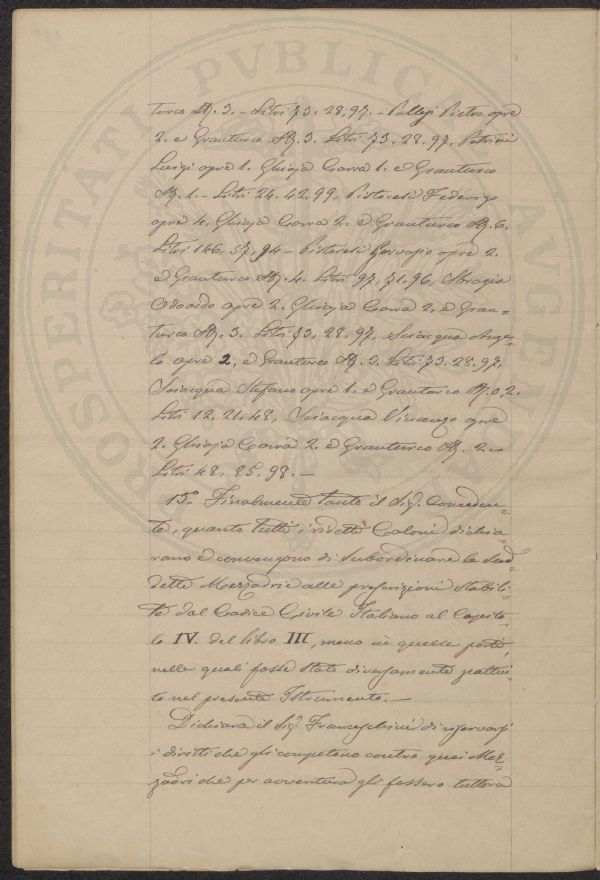 turco St. 3. - Litri 73. 28. 97. - Pallesi Pietro opre
2. e Granturco St. 3. Litri 73. 28. 97, Petrini
Luigi opre 1. Ghiaja Carra 1. e Granturco
St. 1. - Litri 24. 42. 99, Pistoresi Federigo
opre 4. Ghiaja Carra 2. e Granturco St. 6.
Litri 146. 57. 94 - Pistoresi Gervasio opre 2.
e Granturco St. 4. Litri 97. 71. 96,
Odoardo opre 2. Ghiaja Carra 2. e Gran=
turco St. 3. Litri 73. 28. 97, Sciacqua Ange=
lo opre 2, e Granturco St. 3. Litri 73. 28. 97,
Sciacqua Stefano opre 1. e Granturco St. 0,2.
Litri 12. 21. 48, Sciacqua Vincenzo opre
2. Ghiaja Carra 2. e Granturco St. 2. -
Litri 48, 85. 98. -
15.° Finalmente tanto il Sig.r Conceden=
te, quanto tutti i ridetti Coloni dichia=
rano e convengono di subordinare le sud=
dette Mezzadrie alle prescrizioni stabili=
te dal Codice Civile Italiano al Capito=
lo IV. del libro III, meno in quelle parti,
nelle quali fosse stato diversamente pattui=
to nel presente Istrumento. -
Dichiara il Sig.r Franceschini di riservarsi
i diritti che gli competono contro quei Mez=
zadri che per avventura gli fossero tuttora
PROSPERITATI PVBLICAE AVGENDAE